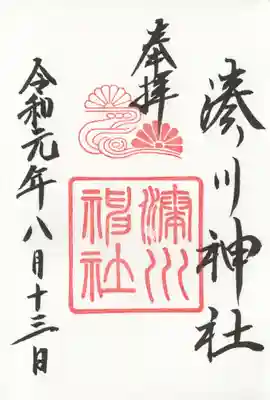 湊川神社
奉拝
湊川
神社
令和元年八月十三日